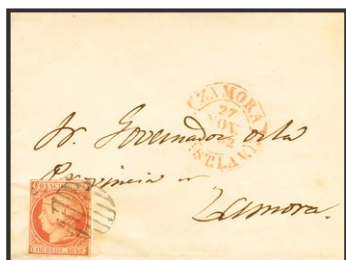 ZAMORA
27
NOV
CAST. LA V.
Sr. Governador de la
Provincia de
Zamora.
CORREOS. 1852